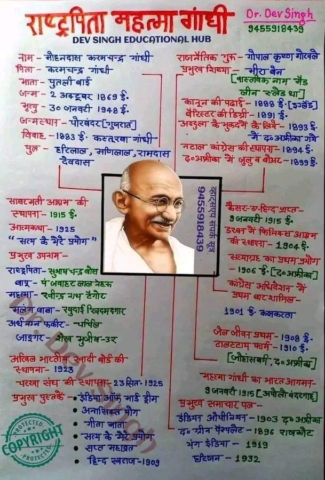 राष्ट्रपिता महत्मा गांधी
Dr. Dev Singh
9455918439
DEV SINGH EDUCATIONAL HUB
नाम - मोहनदास करमचन्द्र गांधी
पिता - करमचन्द्र गांधी
माता - पुतली बाई
जन्म - 2 अक्टूबर 1869 ई.
मृत्यु - 30 जनवरी 1948 ई.
जन्मस्थान - पोरबंदर [गुजरात]
विवाह - 1883 ई. कस्तूरबा गांधी
पुत्र - हरिलाल, मणिलाल, रामदास
देवदास
राजनैतिक गुरु - गोपाल कृष्ण गोखले
प्रमुख शिष्या - मीरा बेन
[वास्तविक नाम मेड
लीन स्लेड था]
कानून की पढ़ाई - 1888 ई [इंग्लैंड]
बैरिस्टर की डिग्री - 1891
अब्दुल्ला के मुकदमे के लिये - 1893
में द० अफ्रीका गये
नटाल कांग्रेस की स्थापना - 1894
द. अफ्रीका में जुलु व बोअर - 1899 ई.
साबरमती आश्रम की
स्थापना - 1915 ई.
आत्मकथा - 1925
"सत्य के मेरे प्रयोग"
प्रमुख उपनाम -
राष्ट्रपिता - सुभाष चन्द्र बोस
बापू - पं जवाहर लाल नेहरू
महात्मा - रवीन्द्र नाथ टैगोर
मलंग बाबा -
अर्धनग्न फकीर - चर्चिल
जादूगर - शेख मुजीब-उर
अखिल भारतीय खादी बोर्ड की
स्थापना - 1923
चरखा संघ की स्थापना - 23 सित. 1925
प्रमुख पुस्तकें - इंडिया ऑफ माई ड्रीम
अनासक्ति योग
गीता माता
सत्य के मेरे प्रयोग
सप्त महाव्रत
हिन्द स्वराज - 1909
व्हाट्सएप संपर्क सूत्र
9455918439
कैसर-ए-हिन्द प्राप्त -
9 जनवरी 1915 ई.
डरबन में फिनिक्स आश्रम
की स्थापना - 1904 ई.
सत्याग्रह का प्रथम प्रयोग
- 1906 ई. [द. अफ्रीका]
कांग्रेस अधिवेशन में
प्रथम बार शामिल
1901 ई. कलकत्ता
जेल जीवन प्रथम - 1908 ई.
टालस्टाय फार्म - 1910 ई.
[जोहांसबर्ग, द. अफ्रीका]
महात्मा गांधी का भारत आगमन -
9 जनवरी 1915 ई [अपोलो बंदरगाह]
प्रमुख समाचार पत्र -
इंडियन ओपीनियन - 1903 द० अफ्रीका
द० ग्रीन पैम्फलेट - 1896 राजकोट
यंग इंडिया - 1919
हरिजन - 1932
Dr. Dev Singh
PROTECTED
COPYRIGHT
PROTECTED